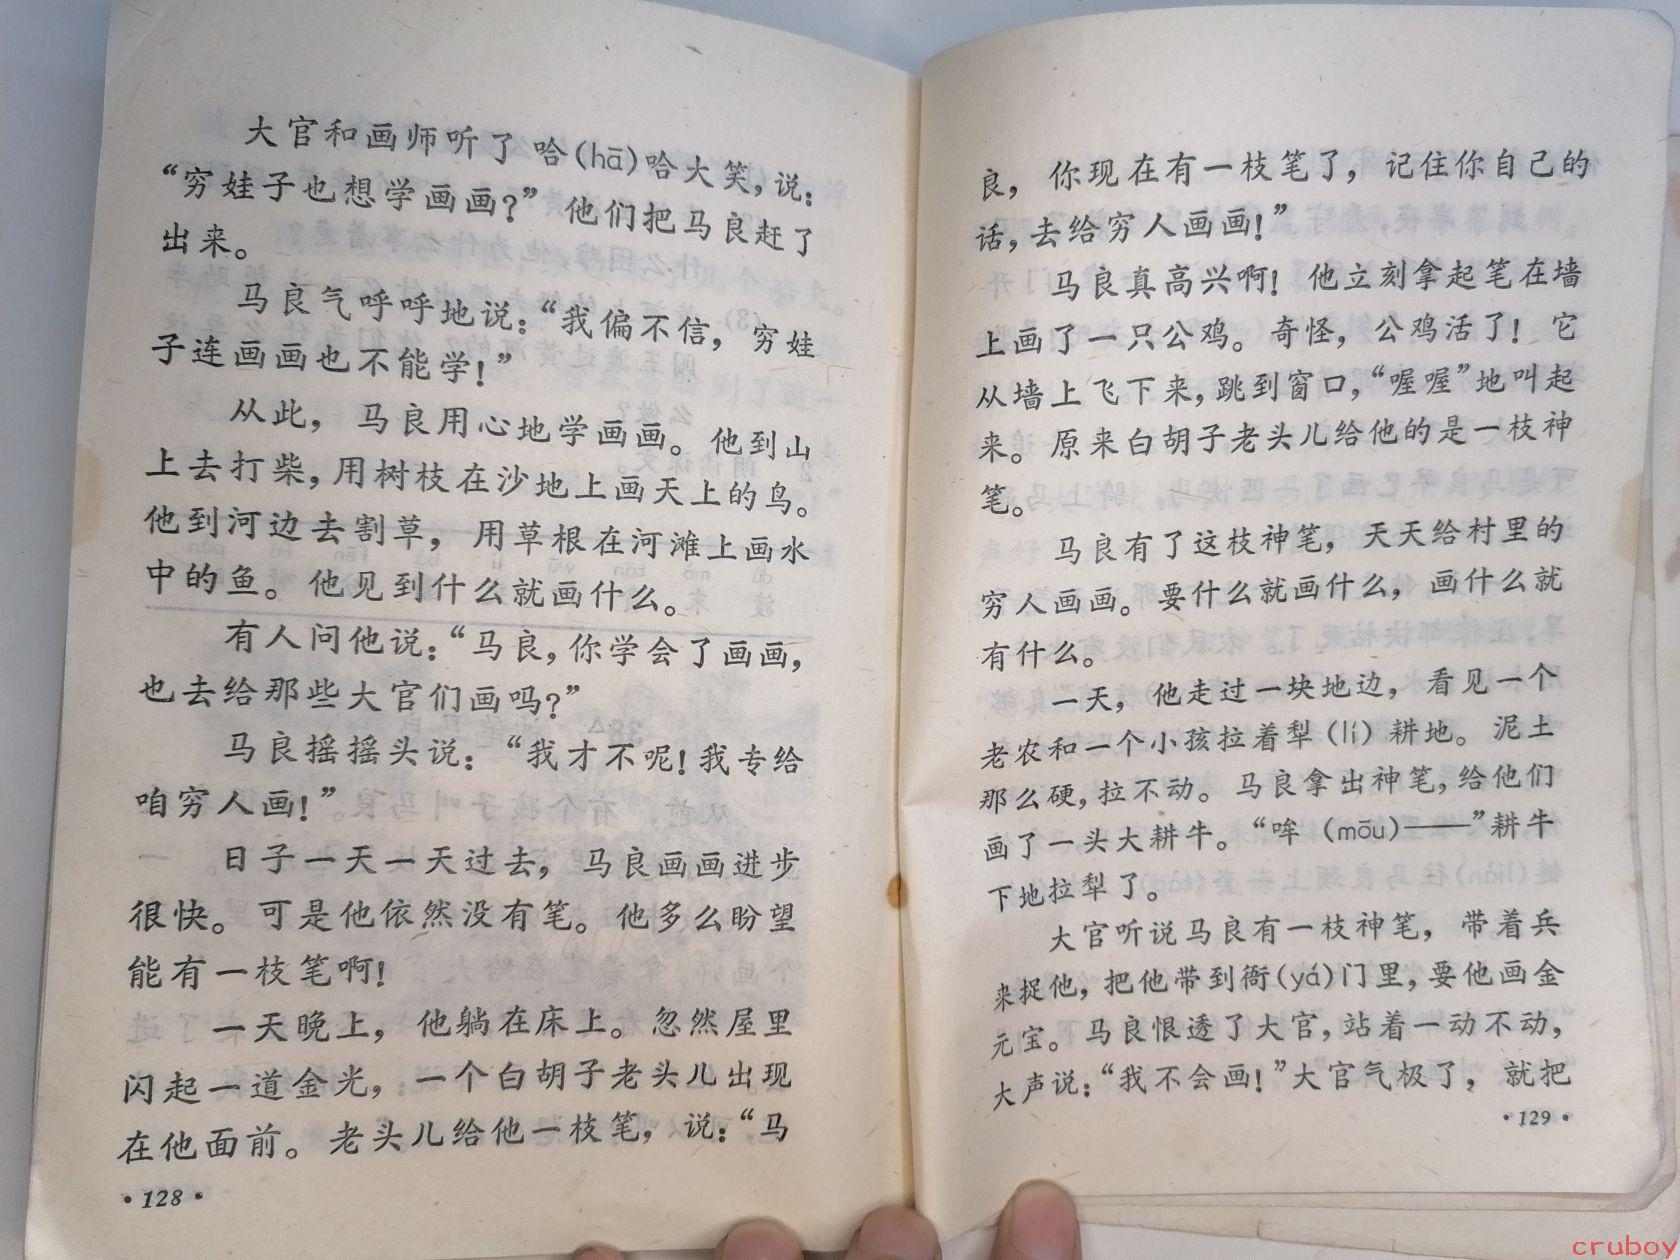 大官和画师听了哈(hā)哈大笑，说：
“穷娃子也想学画画？”他们把马良赶了
出来。
马良气呼呼地说：“我偏不信，穷娃
子连画画也不能学！”
从此，马良用心地学画画。他到山
上去打柴，用树枝在沙地上画天上的鸟。
他到河边去割草，用草根在河滩上画水
中的鱼。他见到什么就画什么。
有人问他说：“马良，你学会了画画，
也去给那些大官们画吗？”
马良摇摇头说：“我才不呢！我专给
咱穷人画！”
日子一天一天过去，马良画画进步
很快。可是他依然没有笔。他多么盼望
能有一枝笔啊！
一天晚上，他躺在床上。忽然屋里
闪起一道金光，一个白胡子老头儿出现
在他面前。老头儿给他一枝笔，说：“马
·128·
良，你现在有一枝笔了，记住你自己的
话，去给穷人画画！”
马良真高兴啊！他立刻拿起笔在墙
上画了一只公鸡。奇怪，公鸡活了！它
从墙上飞下来，跳到窗口，“喔喔”地叫起
来。原来白胡子老头儿给他的是一枝神
笔。
马良有了这枝神笔，天天给村里的
穷人画画。要什么就画什么，画什么就
有什么。
一天，他走过一块地边，看见一个
老农和一个小孩拉着犁(lí)耕地。泥土
那么硬，拉不动。马良拿出神笔，给他们
画了一头大耕牛。“哞(mōu)——”耕牛
下地拉犁了。
大官听说马良有一枝神笔，带着兵
来捉他，把他带到衙(yá)门里，要他画金
元宝。马良恨透了大官，站着一动不动，
大声说：“我不会画！”大官气极了，就把
·129·
cruboy